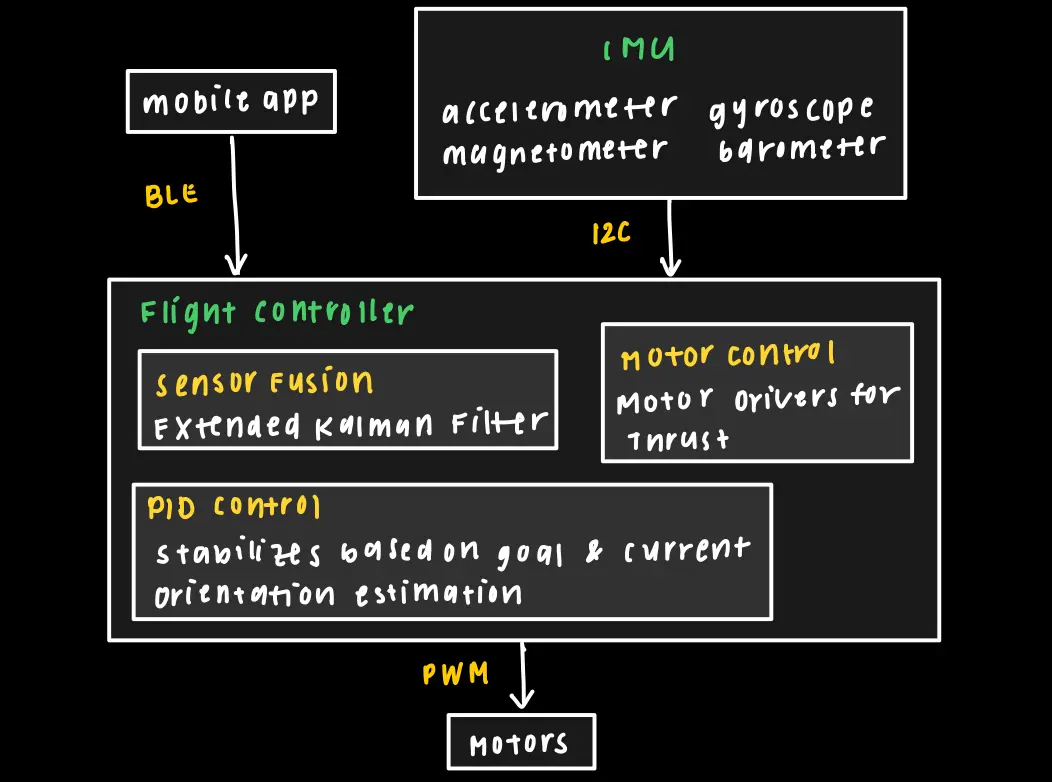 mobile app
IMU
accelerometer gyroscope
magnetometer barometer
BLE
I2C
Flight controller
Sensor Fusion
Extended Kalman Filter
Motor control
Motor Drivers for
Thrust
PID control
stabilizes based on goal & current
orientation estimation
PWM
Motors